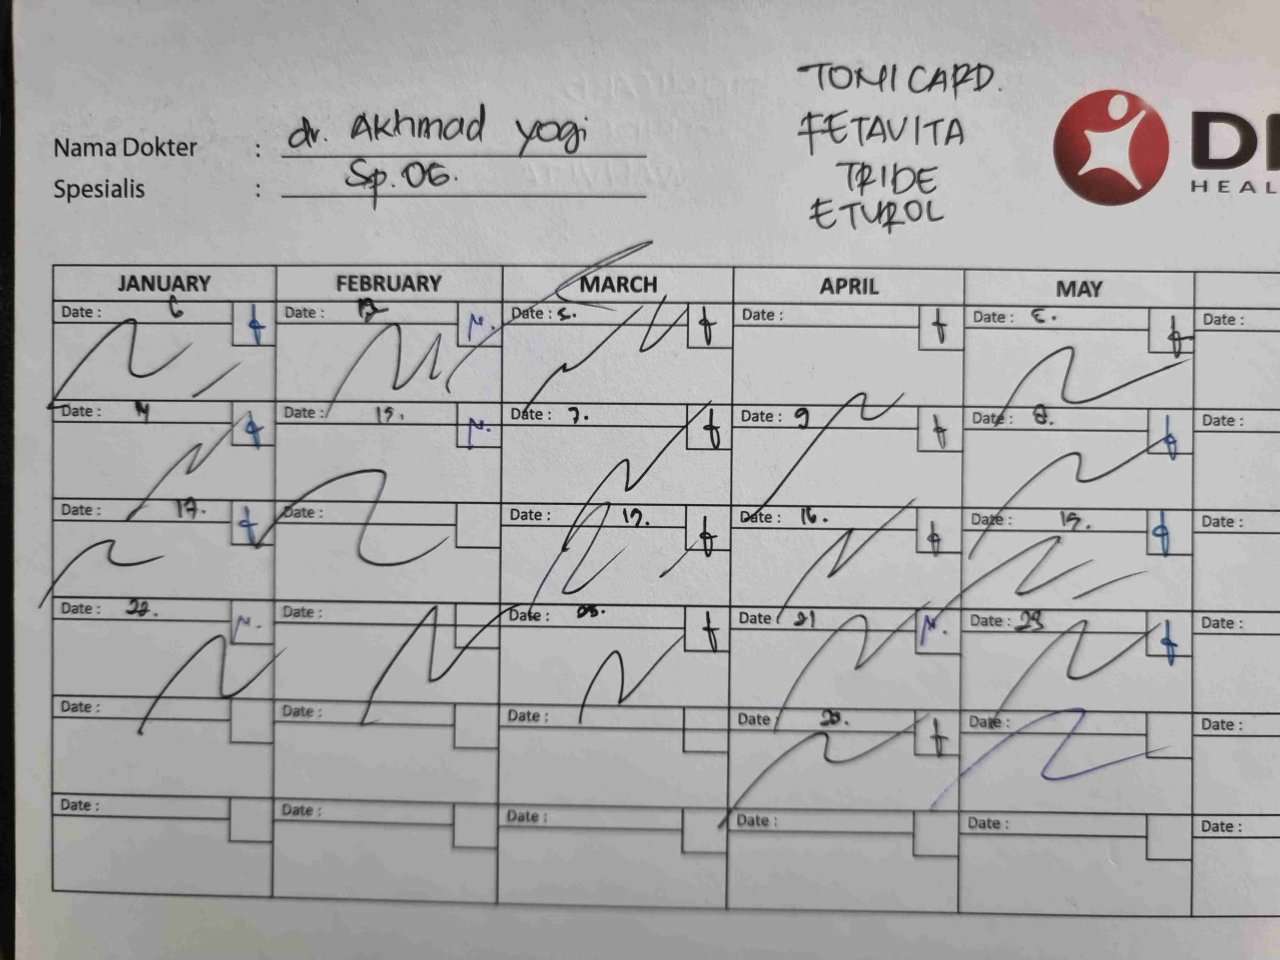 TOMICARD.
Nama Dokter : dr. Akhmad yogi
FETAVITA
Spesialis : Sp.OG.
TRIDE
ETUROL
HEAL
JANUARY FEBRUARY MARCH APRIL MAY
Date : 6 Date : Date : 5. Date : Date : Date :
Date : Date : 15. Date : 7. Date : 9 Date : 8. Date :
Date : 17. Date : Date : 17. Date : 16. Date : 15. Date :
Date : 22. Date : Date : Date : 21 Date : 23 Date :
Date : Date : Date : Date : Date : Date :
Date : Date : Date : Date : Date : Date :